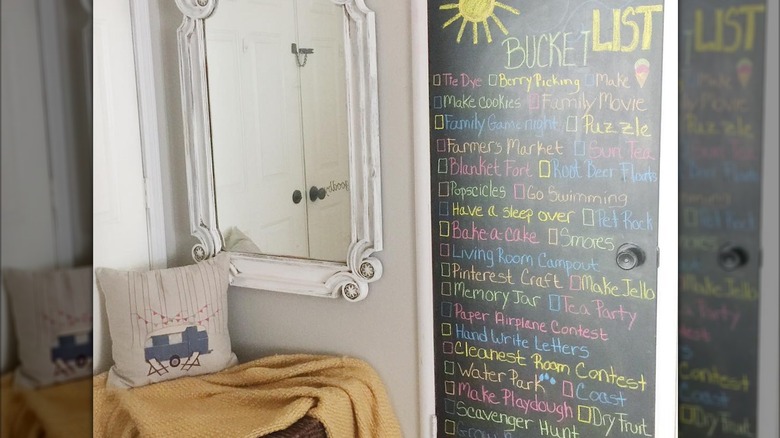 BUCKET LIST
Tie Dye Berry Picking Make
Make cookies Family Movie
Family Game night Puzzle
Farmers Market Sun Tea
Blanket Fort Root Beer Floats
Popsicles Go Swimming
Have a sleep over Pet Rock
Bake-a-cake Smores
Living Room Campout
Pinterest Craft Make Jello
Memory Jar Tea Party
Paper Airplane Contest
Hand Write Letters
Cleanest Room Contest
Water Park Coast
Make Playdough Dry Fruit
Scavenger Hunt